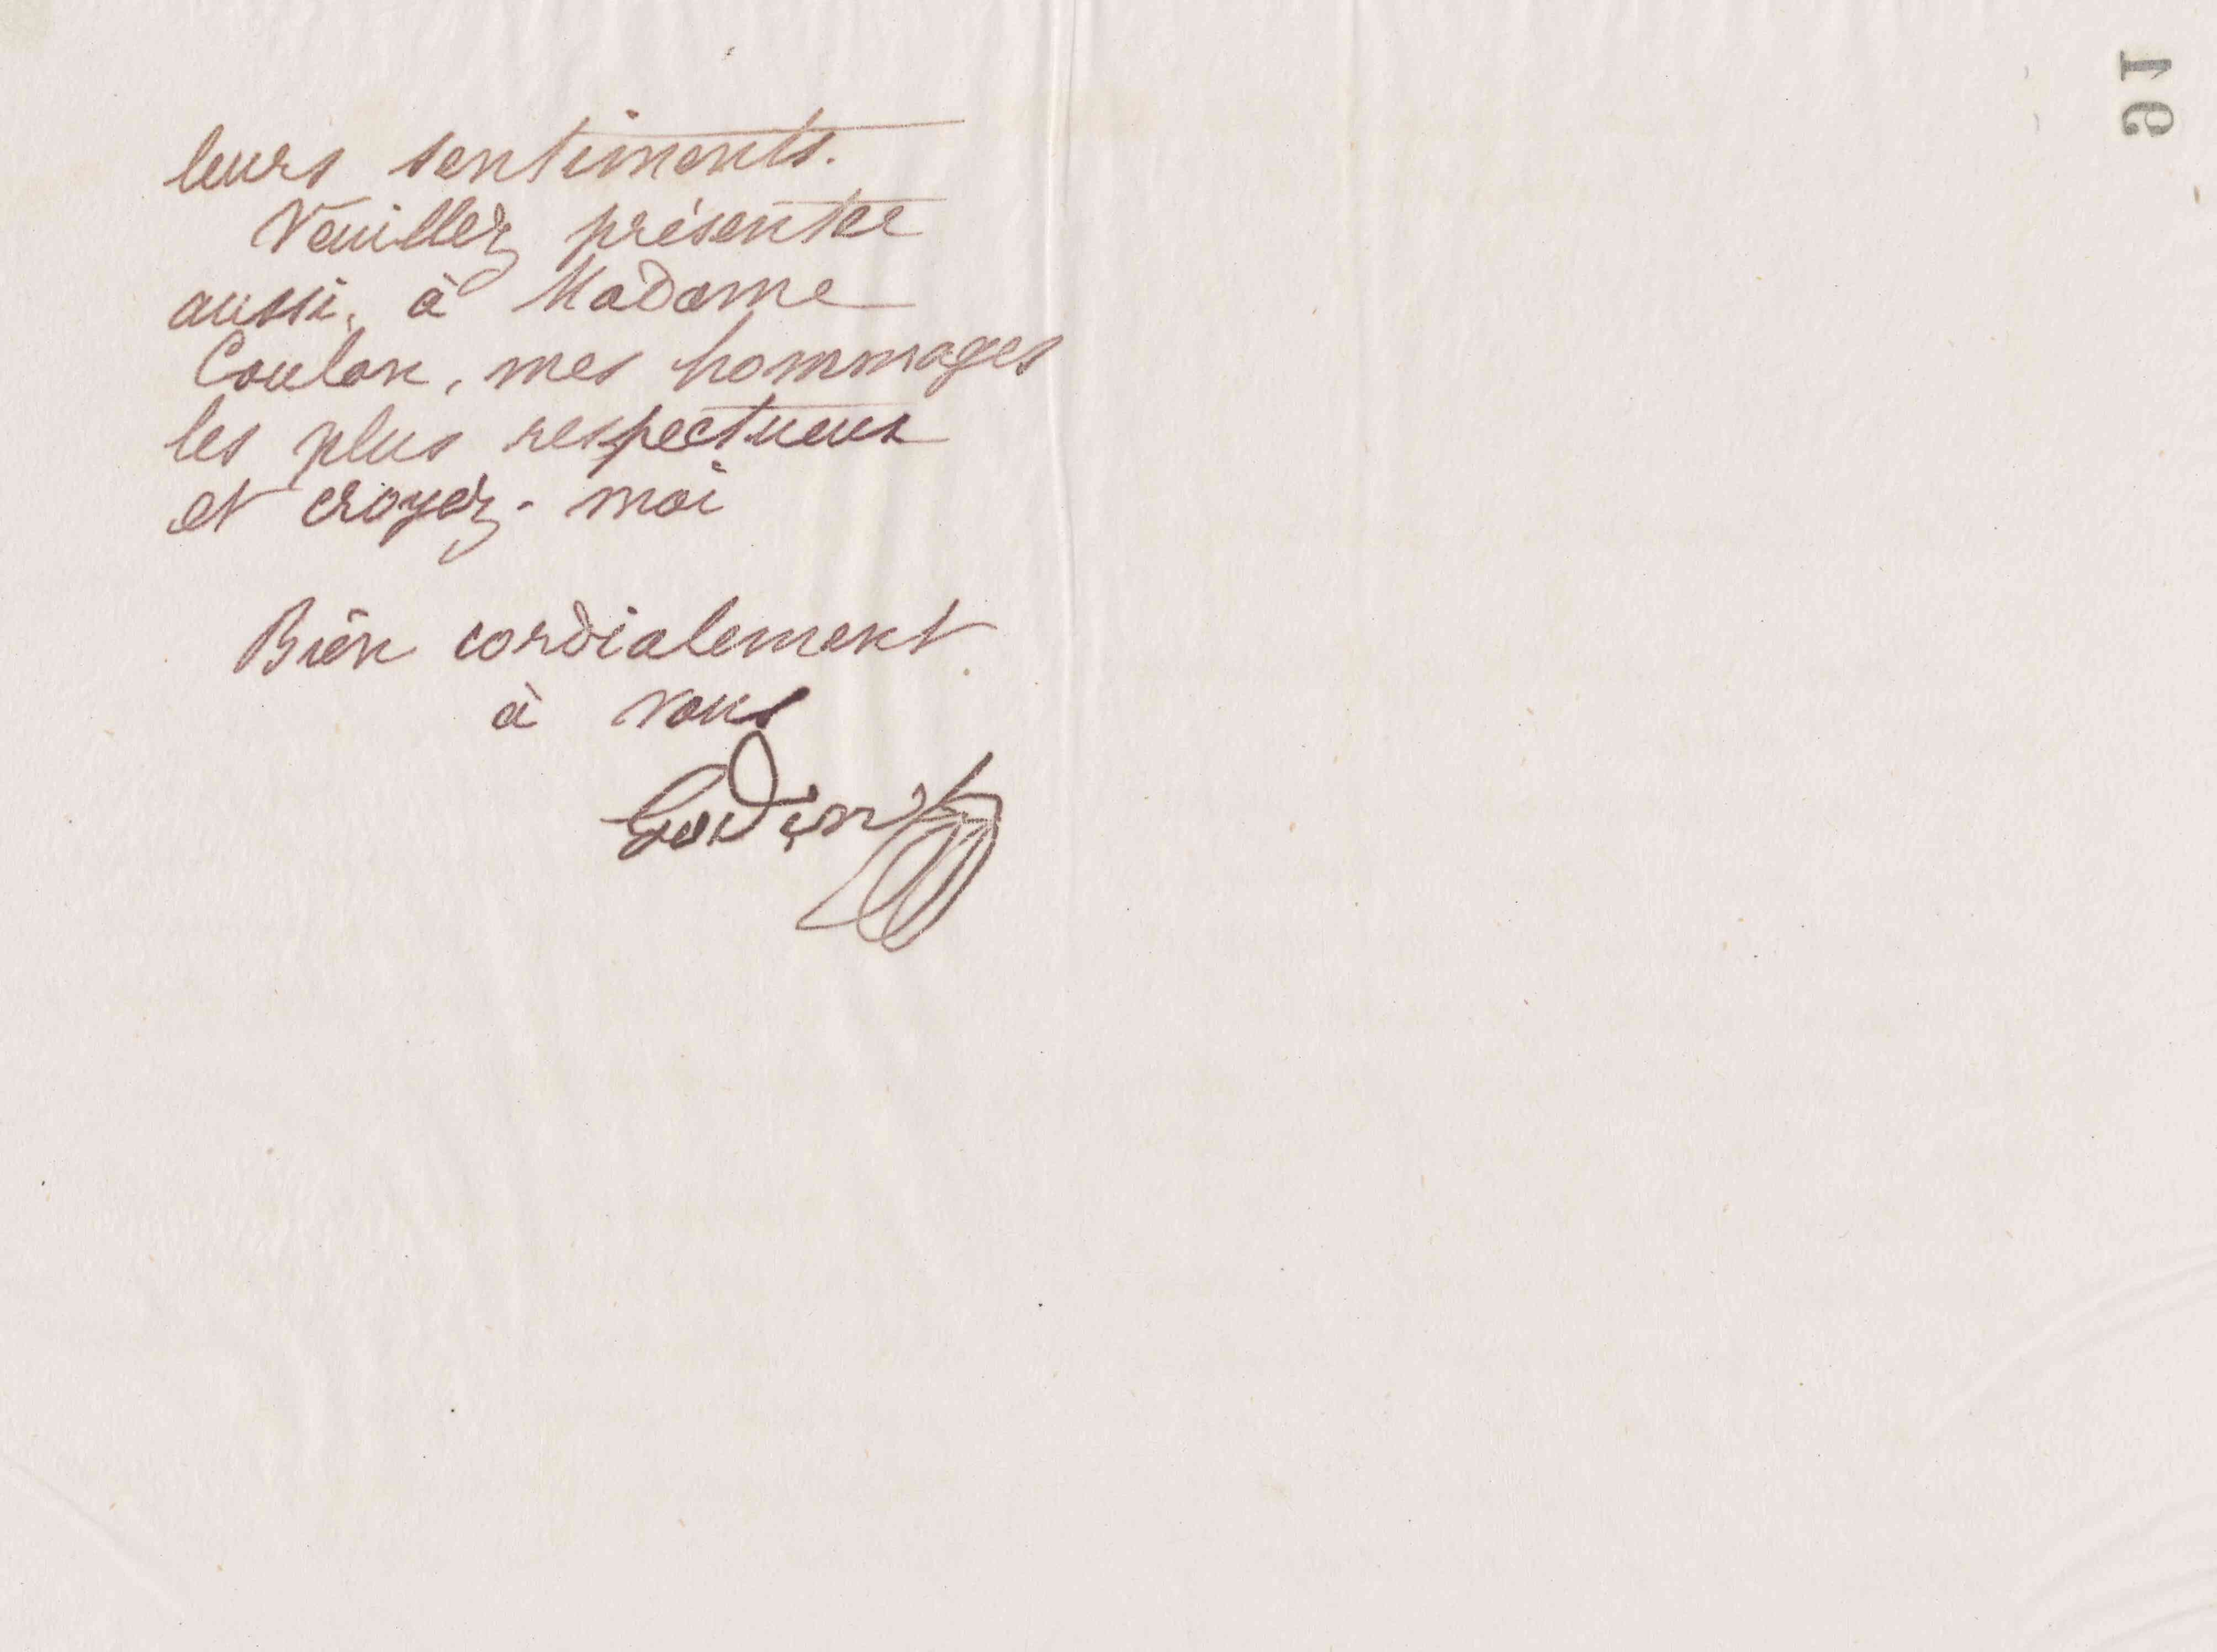 leurs sentiments.
Veuillez présenter
aussi, à Madame
Coulon, mes hommages
les plus respectueux
et croyez-moi
Bien cordialement
à vous
Godin
91